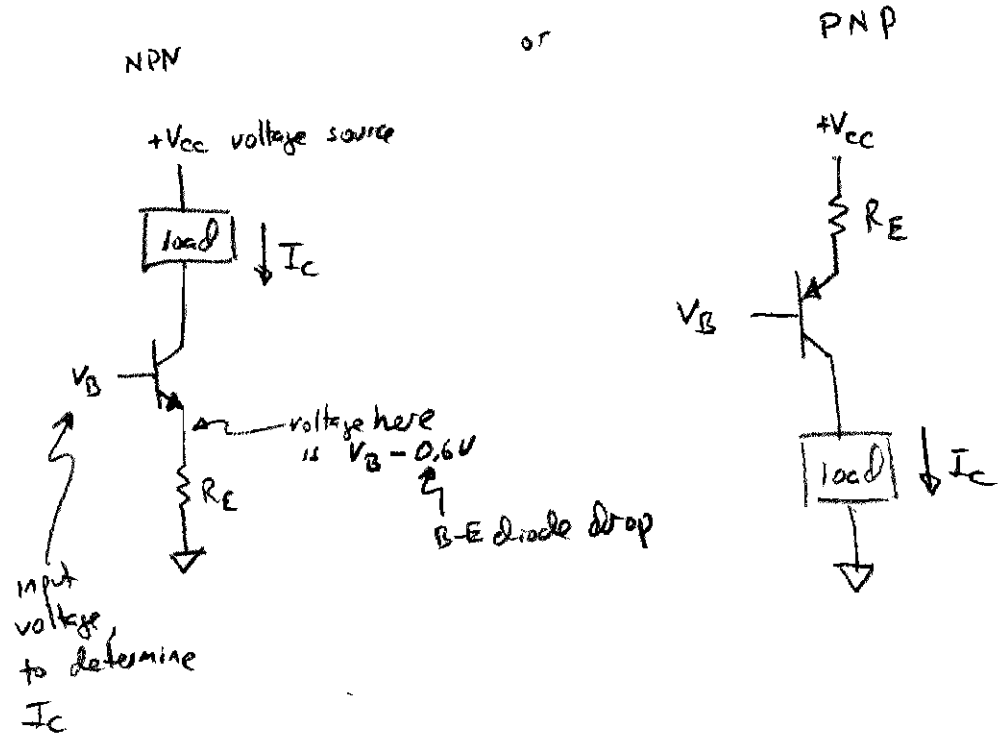 NPN
or
PNP
+Vcc voltage source
load
Ic
VB
voltage here
is VB - 0.6V
RE
B-E diode drop
input
voltage,
to determine
Ic
+Vcc
RE
VB
load
Ic